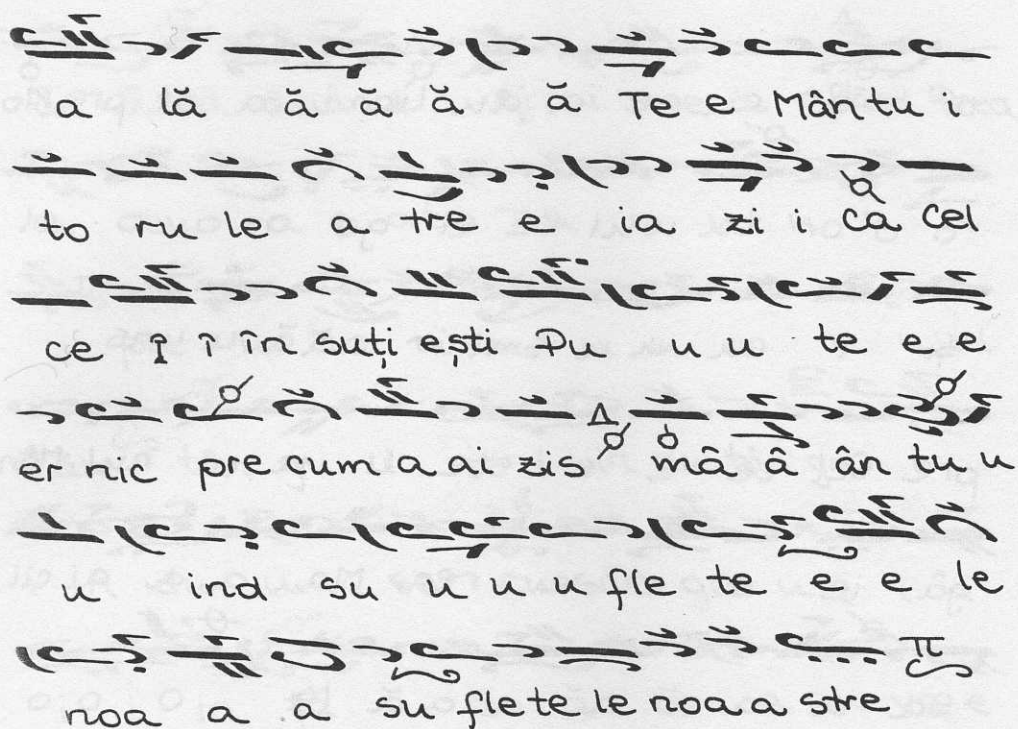 a lă ă ă ă ă Te e Mân tu i
to ru le a tre e ia zi i ca cel
ce î î în suți ești Pu u u te e e
er nic pre cum a ai zis mâ â ân tu u
u ind su u u u fle te e e le
noa a a su fle te le noa a stre